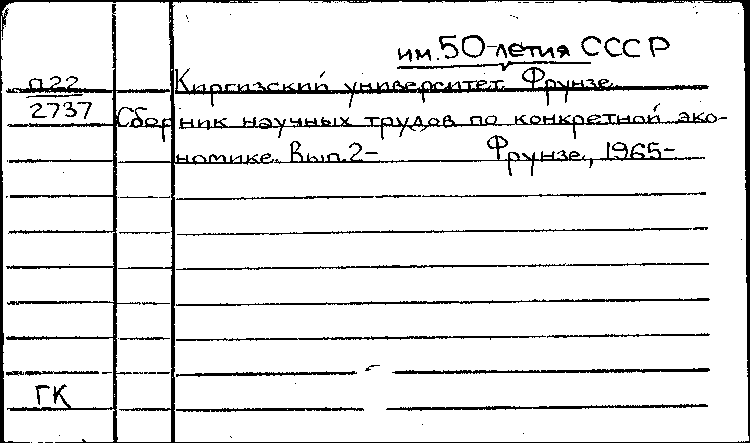 им. 50-летия СССР
П22 Киргизский университет. Фрунзе.
2737 Сборник научных трудов по конкретной эко-
номике. Вып.2- Фрунзе, 1965-
ГК